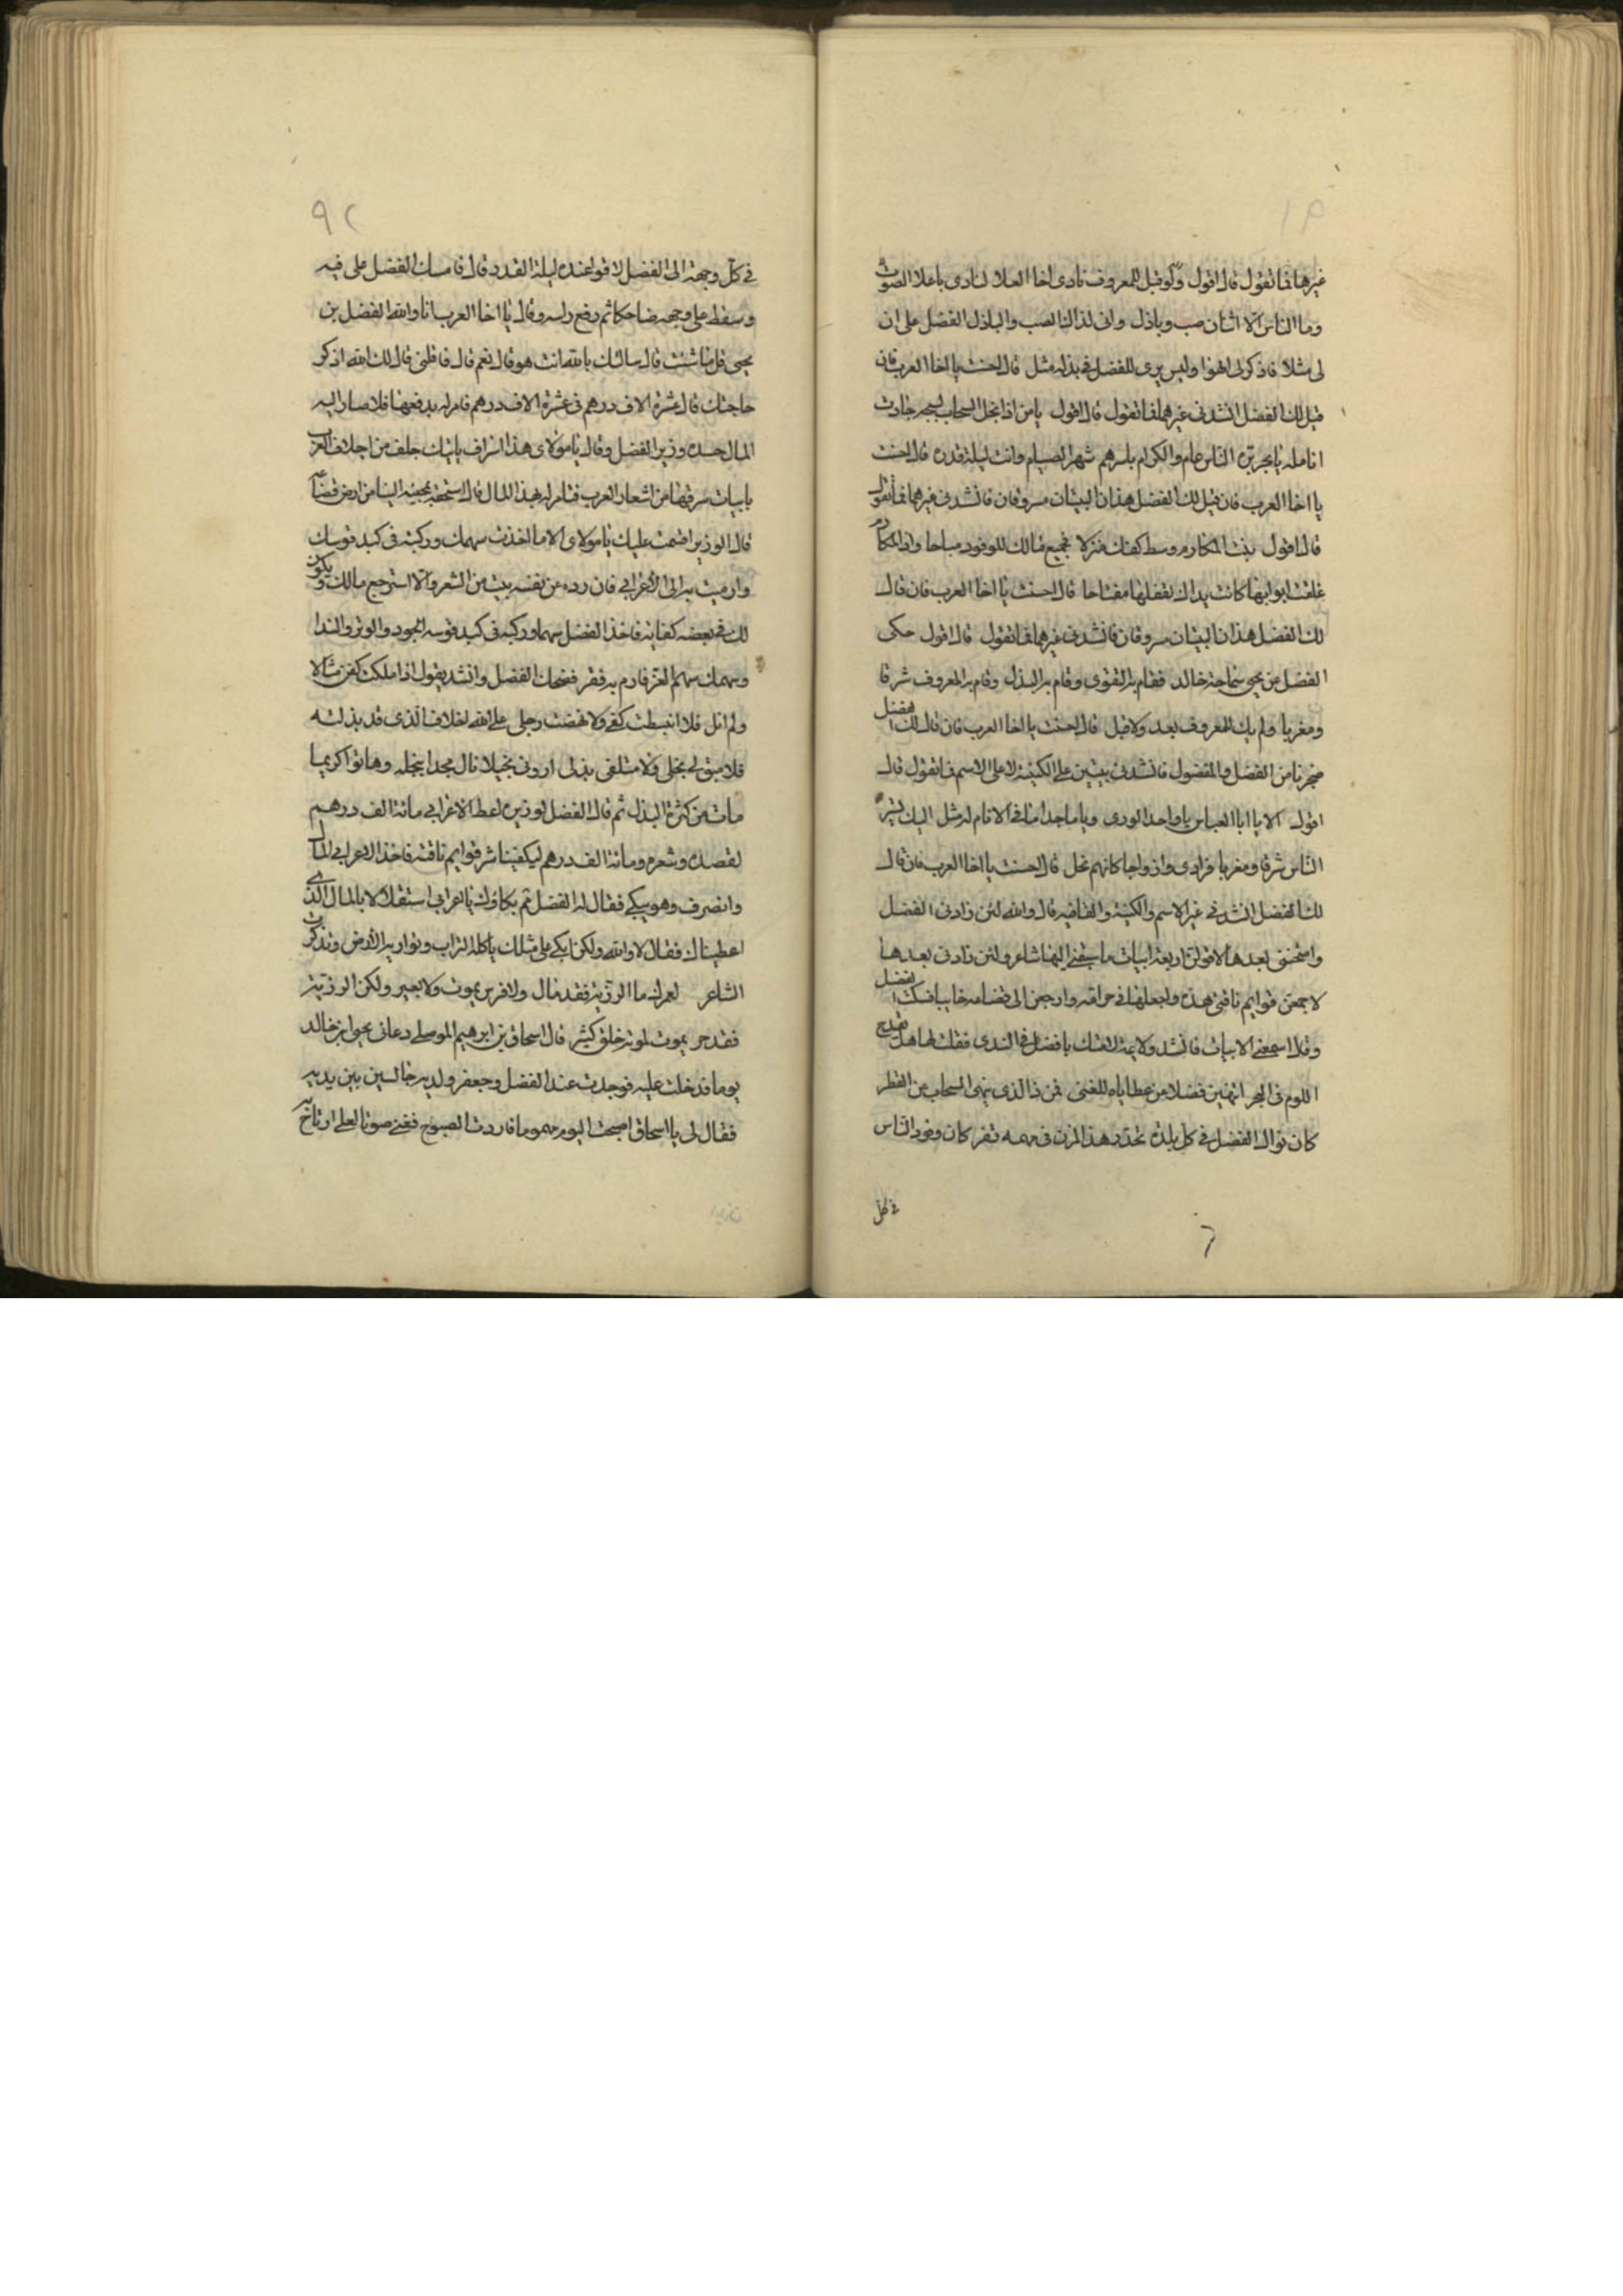 غيرها فما تقول قال اقول ولو قيل للمعروف نادى اخا العلا لنادى باعلا الصوت
وما الناس الا اثنان صب وباذل وانى لذاك الصب والباذل الفضل على ان
لى مثلا فاذكر لى الهوا وليس يرى للفضل فى بذله مثل قال احسنت يا اخا العرب فان
قيل لك الفضل انشدنى غيرهما فما تقول قال اقول يا من اذا بخل السحاب بسجه جادت
انامله يا بحر بره الناس عام والكرام باسرهم شهر الصيام وانت ليلة قدره قال احسنت
يا اخا العرب فان قيل لك الفضل هذان البيتان مسروقان فانشدنى غيرهما فما تقول
قال اقول بنت المكارم وسط كفك منزلا فجميع مالك للوفود مباحا واذا المكارم
غلقت ابوابها كانت يداك لقفلها مفتاحا قال احسنت يا اخا العرب فان قال
لك الفضل هذان البيتان مسروقان فانشدنى غيرهما فما تقول قال اقول حكى
الفضل عن يحيى سماحة خالد فقام به التقوى وقام به البذل وقام به المعروف شرقا
ومغربا ولم يك للمعروف بعد ولا قبل قال احسنت يا اخا العرب فان قال لك الفضل
ضجرنا من الفضل والمفضول فانشدنى بيتين على الكنية لا على الاسم فما تقول قال
اقول الا يا ابا العباس يا واحد الورى ويا ماجدا ما فى الانام له مثل اليك تسير
الناس شرقا ومغربا فرادى وازواجا كانهم نحل قال احسنت يا اخا العرب فان قال
لك الفضل انشدنى غير الاسم والكنية والقافيه قال والله لئن زادنى الفضل
وامتحننى بعدها لاقولن اربعة ابيات ما سبقنى اليها شاعر ولئن زادنى بعدها
لاجمعن قوايم ناقتى هذه واجعلها فى حرامه وارجعن الى قضاعه خايبا فسكت الفضل
وقال اسمعنى الابيات فانشد ولائمة لامتك يا فضل فى الندى فقلت لها هل يقدح
اللوم فى البحر اتنهين فضلا من عطاياه للغنى فمن ذا الذى ينهى السحاب عن القطر
كان نوال الفضل فى كل بلدة تحدر هذا المزن فى مهمه قفر كان وفود الناس
فى كل
٩٢
فى كل وجهة الى الفضل لاقوا عنده ليلة القدر قال فامسك الفضل على فيه
وسقط على وجهه ضاحكا ثم رفع راسه وقال يا اخا العرب انا والله الفضل بن
يحيى قل ما شئت قال سالتك بالله انت هو قال نعم قال فاقلنى قال لك الله اذكر
حاجتك قال عشرة الاف درهم فى عشرة الاف درهم فامر له بدفعها فلما صار اليه
المال حسده وزير الفضل وقال يا مولاى هذا اسراف ياتيك جلف من اجلاف العرب
بابيات سرقها من اشعار العرب فتامر له بهذا المال قال استحقه بمجيئه الينا من ارض قضاعه
قال الوزير اقسمت عليك يا مولاى الا ما اخذت سهمك وركبته فى كبد قوسك
وارميت به الى الاعرابى فان رده عن نفسه ببيت من الشعر والا استرجع مالك ويكون
لك فى بعضه كفاية فاخذ الفضل سهما وركبه فى كبد قوسه الجود والوتر والندا
وسهمك سهم العز فارم به فقر فضحك الفضل وانشد يقول اذا ملكت كفى منالا
ولم انل فلا انبسطت كفى ولا نهضت رجلى على الله اخلاف الذى قد بذلته
فلا مبق لى بخلى ولا متلفى بذلى ارونى بخيلا نال مجدا ببخله وهاتوا كريما
مات من كثرة البذل ثم قال الفضل لوزيره اعط الاعرابى مائة الف درهم
لقصده وشعره ومائة الف درهم ليكفينا شر قوايم ناقته فاخذ الاعرابى المال
وانصرف وهو يبكى فقال له الفضل مم بكاؤك يا اعرابى استقلالا بالمال الذى
اعطيناك فقال لا والله ولكن ابكى على مثلك ياكله التراب وتواريه الارض وتذكرت
الشاعر لعمرك ما الرزية فقد مال ولا فرس يموت ولا بعير ولكن الرزية
فقد حر يموت لموته خلق كثير قال اسحاق بن ابرهيم الموصلى دعانى يحيى ابن خالد
يوما فدخلت عليه فوجدت عند الفضل وجعفر ولديه جالسين بين يديه
فقال لى يا اسحاق اصبحت اليوم مهموما فاردت الصبوح فغنى صوتا لعلى ارتاح